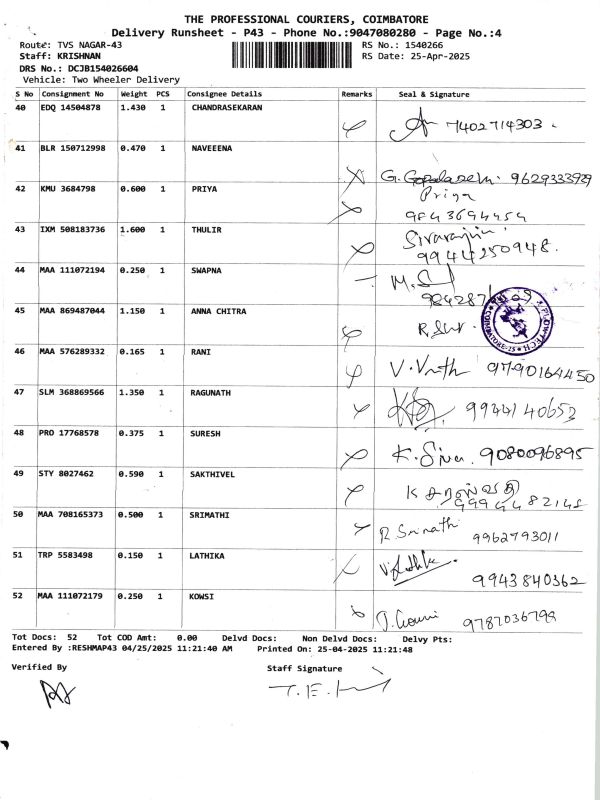 THE PROFESSIONAL COURIERS, COIMBATORE
Delivery Runsheet - P43 - Phone No.:9047080280 - Page No.:4
Route: TVS NAGAR-43 RS No.: 1540266
Staff: KRISHNAN RS Date: 25-Apr-2025
DRS No.: DCJB154026604
Vehicle: Two Wheeler Delivery
S No Consignment No Weight PCS Consignee Details Remarks Seal & Signature
40 EDQ 14504878 1.430 1 CHANDRASEKARAN
7402714303.
41 BLR 150712998 0.470 1 NAVEEENA
G. 9629333929
42 KMU 3684798 0.600 1 PRIYA
Priya
9843694454
43 IXM 508183736 1.600 1 THULIR
9944250948.
44 MAA 111072194 0.250 1 SWAPNA
45 MAA 869487044 1.150 1 ANNA CHITRA
46 MAA 576289332 0.165 1 RANI
9790164450
47 SLM 368869566 1.350 1 RAGUNATH
9944140652
48 PRO 17768578 0.375 1 SURESH
K. Siva. 9080096895
49 STY 8027462 0.590 1 SAKTHIVEL
50 MAA 708165373 0.500 1 SRIMATHI
R Srinath 9962793011
51 TRP 5583498 0.150 1 LATHIKA
9943840362
52 MAA 111072179 0.250 1 KOWSI
9787036798
Tot Docs: 52 Tot COD Amt: 0.00 Delvd Docs: Non Delvd Docs: Delvy Pts:
Entered By :RESHMAP43 04/25/2025 11:21:40 AM Printed On: 25-04-2025 11:21:48
Verified By Staff Signature